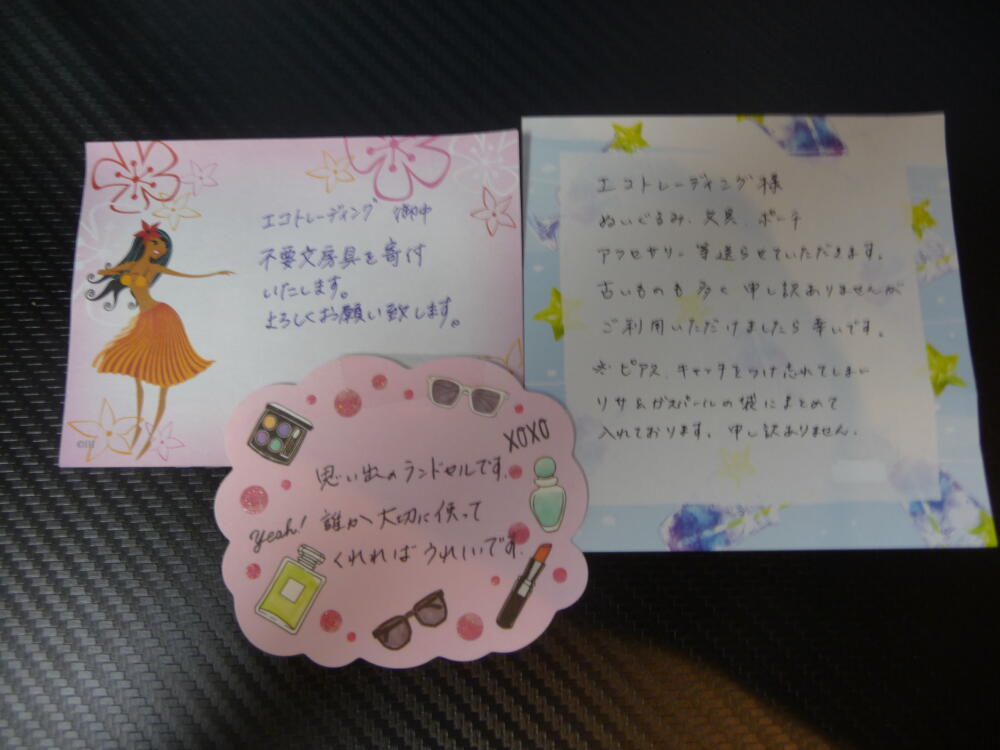 エコトレーディング 御中
不要文房具を寄付
いたします。
よろしくお願い致します。
エコトレーディング様
ぬいぐるみ、文具、ポーチ
アクセサリー等送らせていただきます。
古いものも多く申し訳ありませんが
ご利用いただけましたら幸いです。
※ピアス、キャッチをつけ忘れてしまい
リサ&ガスパールの袋にまとめて
入れております。申し訳ありません。
XOXO
思い出のランドセルです。
Yeah! 誰か大切に使って
くれればうれしいです。